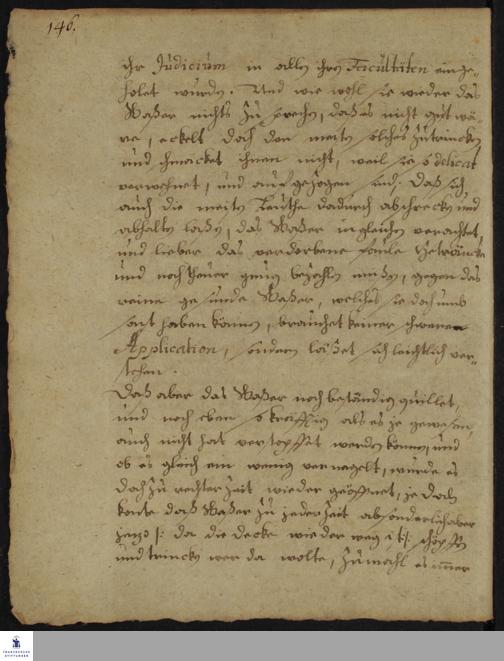 146.
ihr Judicium in allen ihren Facultäten einge-
holet wurden. Und wie wohl sie wieder das
Waßer nichts zu sprechen, daß es nicht gut wä-
re, eckelt doch den meisten solches zutrincken
und schmecket ihnen nicht, weil sie so delicat
verwehnet, und auf gezogen sind. Daß sich
auch die meisten Leuthe dadurch abschrecken und
abhalten laßen, das Waßer ingleichen verachtet,
und lieber das verdorbene faule Geträncke
und noch theuer genug bezahlen müßen, gegen das
reine gesunde Waßer, welches sie doch umb
sonst haben können, brauchet keiner schweren
Application, sondern läßet sich leichtlich ver-
stehen.
Daß aber das Waßer noch beständig quillet,
und noch eben so kräfftig als es je gewesen,
auch nicht hat verstopfft werden können, und
ob es gleich ein wenig vernagelt, wurde es
doch zu rechter Zeit wieder geöffnet, je doch
konte daß Waßer zu jeder Zeit absonderlich aber
jezo |: da die Decke wieder weg ist :| schöpffen
und trincken wer da wolte, zumahl es immer
FRANCKESCHE
STIFTUNGEN